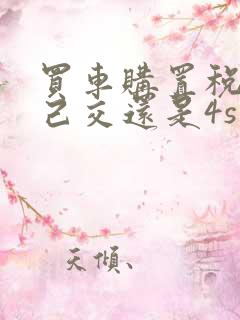 買車購置稅
己交還是4s
天傾、